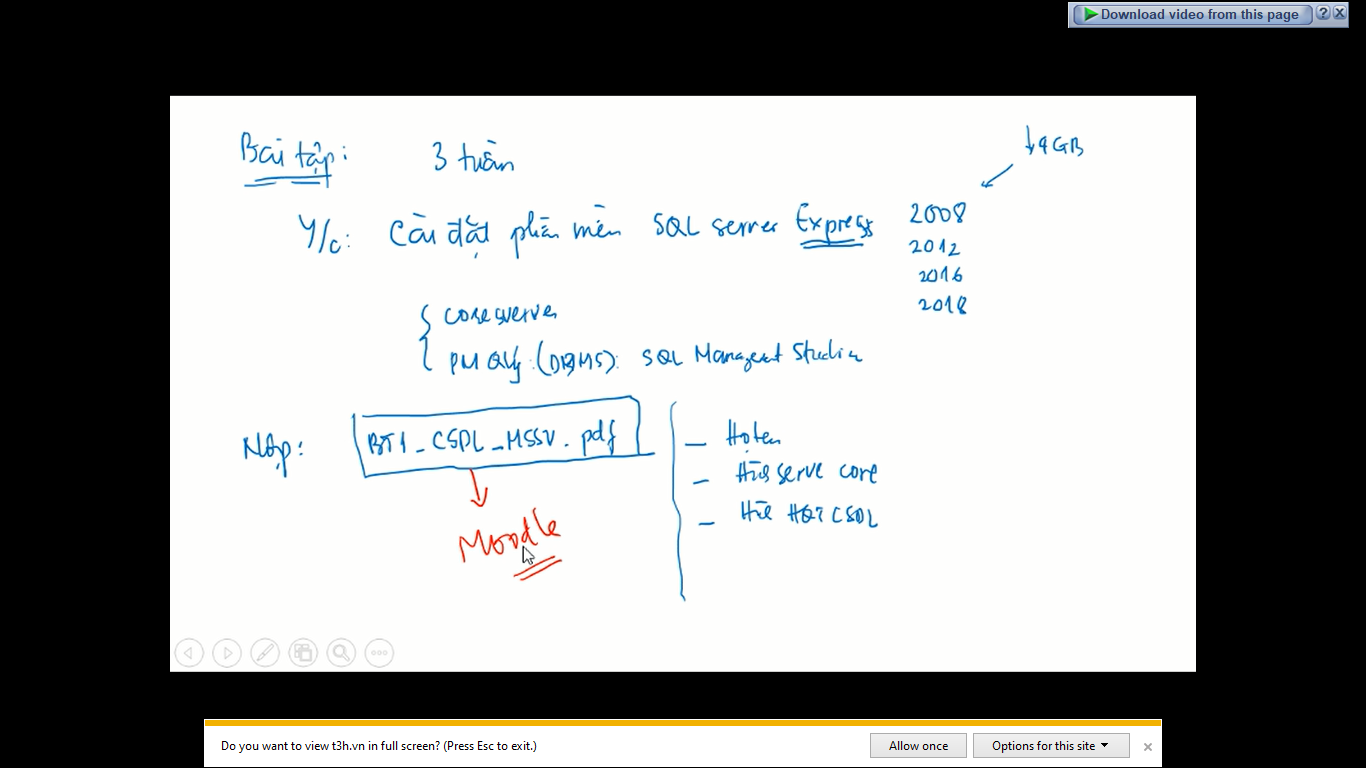 Download video from this page
Bài tập: 3 tuần
↓4GB
Y/c: Cài đặt phần mền SQL server Express 2008
2012
2016
2018
core server
PM QLý (DBMS): SQL Managent Studio
Nộp: BT1_CSDL_MSSV.pdf
Moodle
- Họ tên
- Hình serve core
- Hình HQT CSDL
Do you want to view t3h.vn in full screen? (Press Esc to exit.)
Allow once
Options for this site